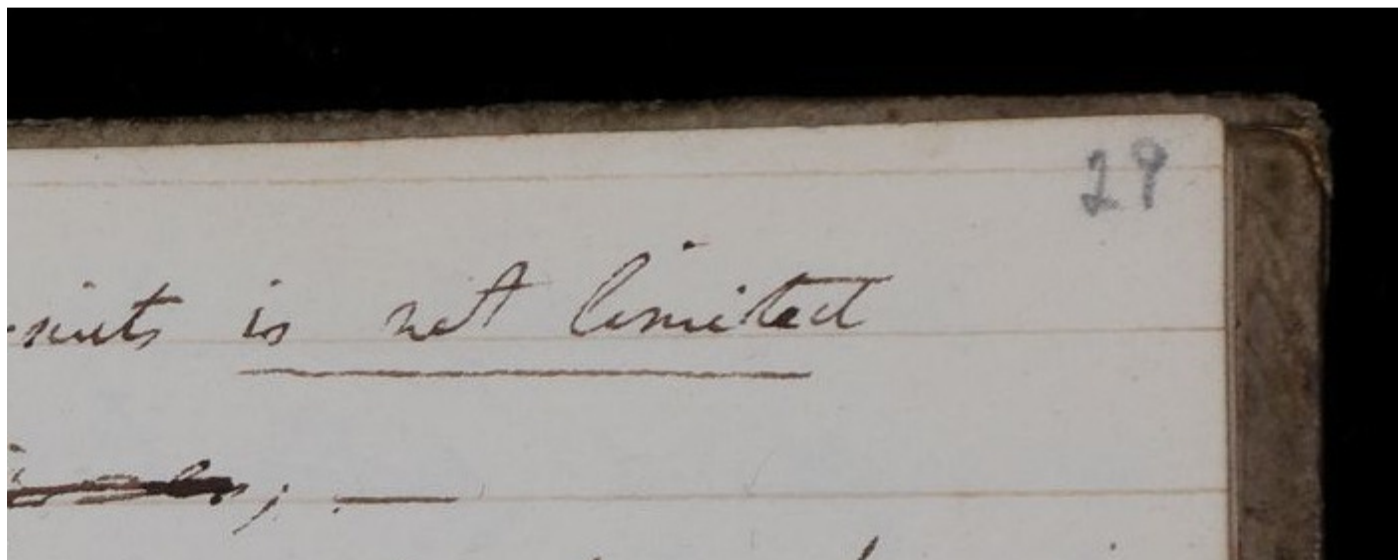 29
is not limited
; —